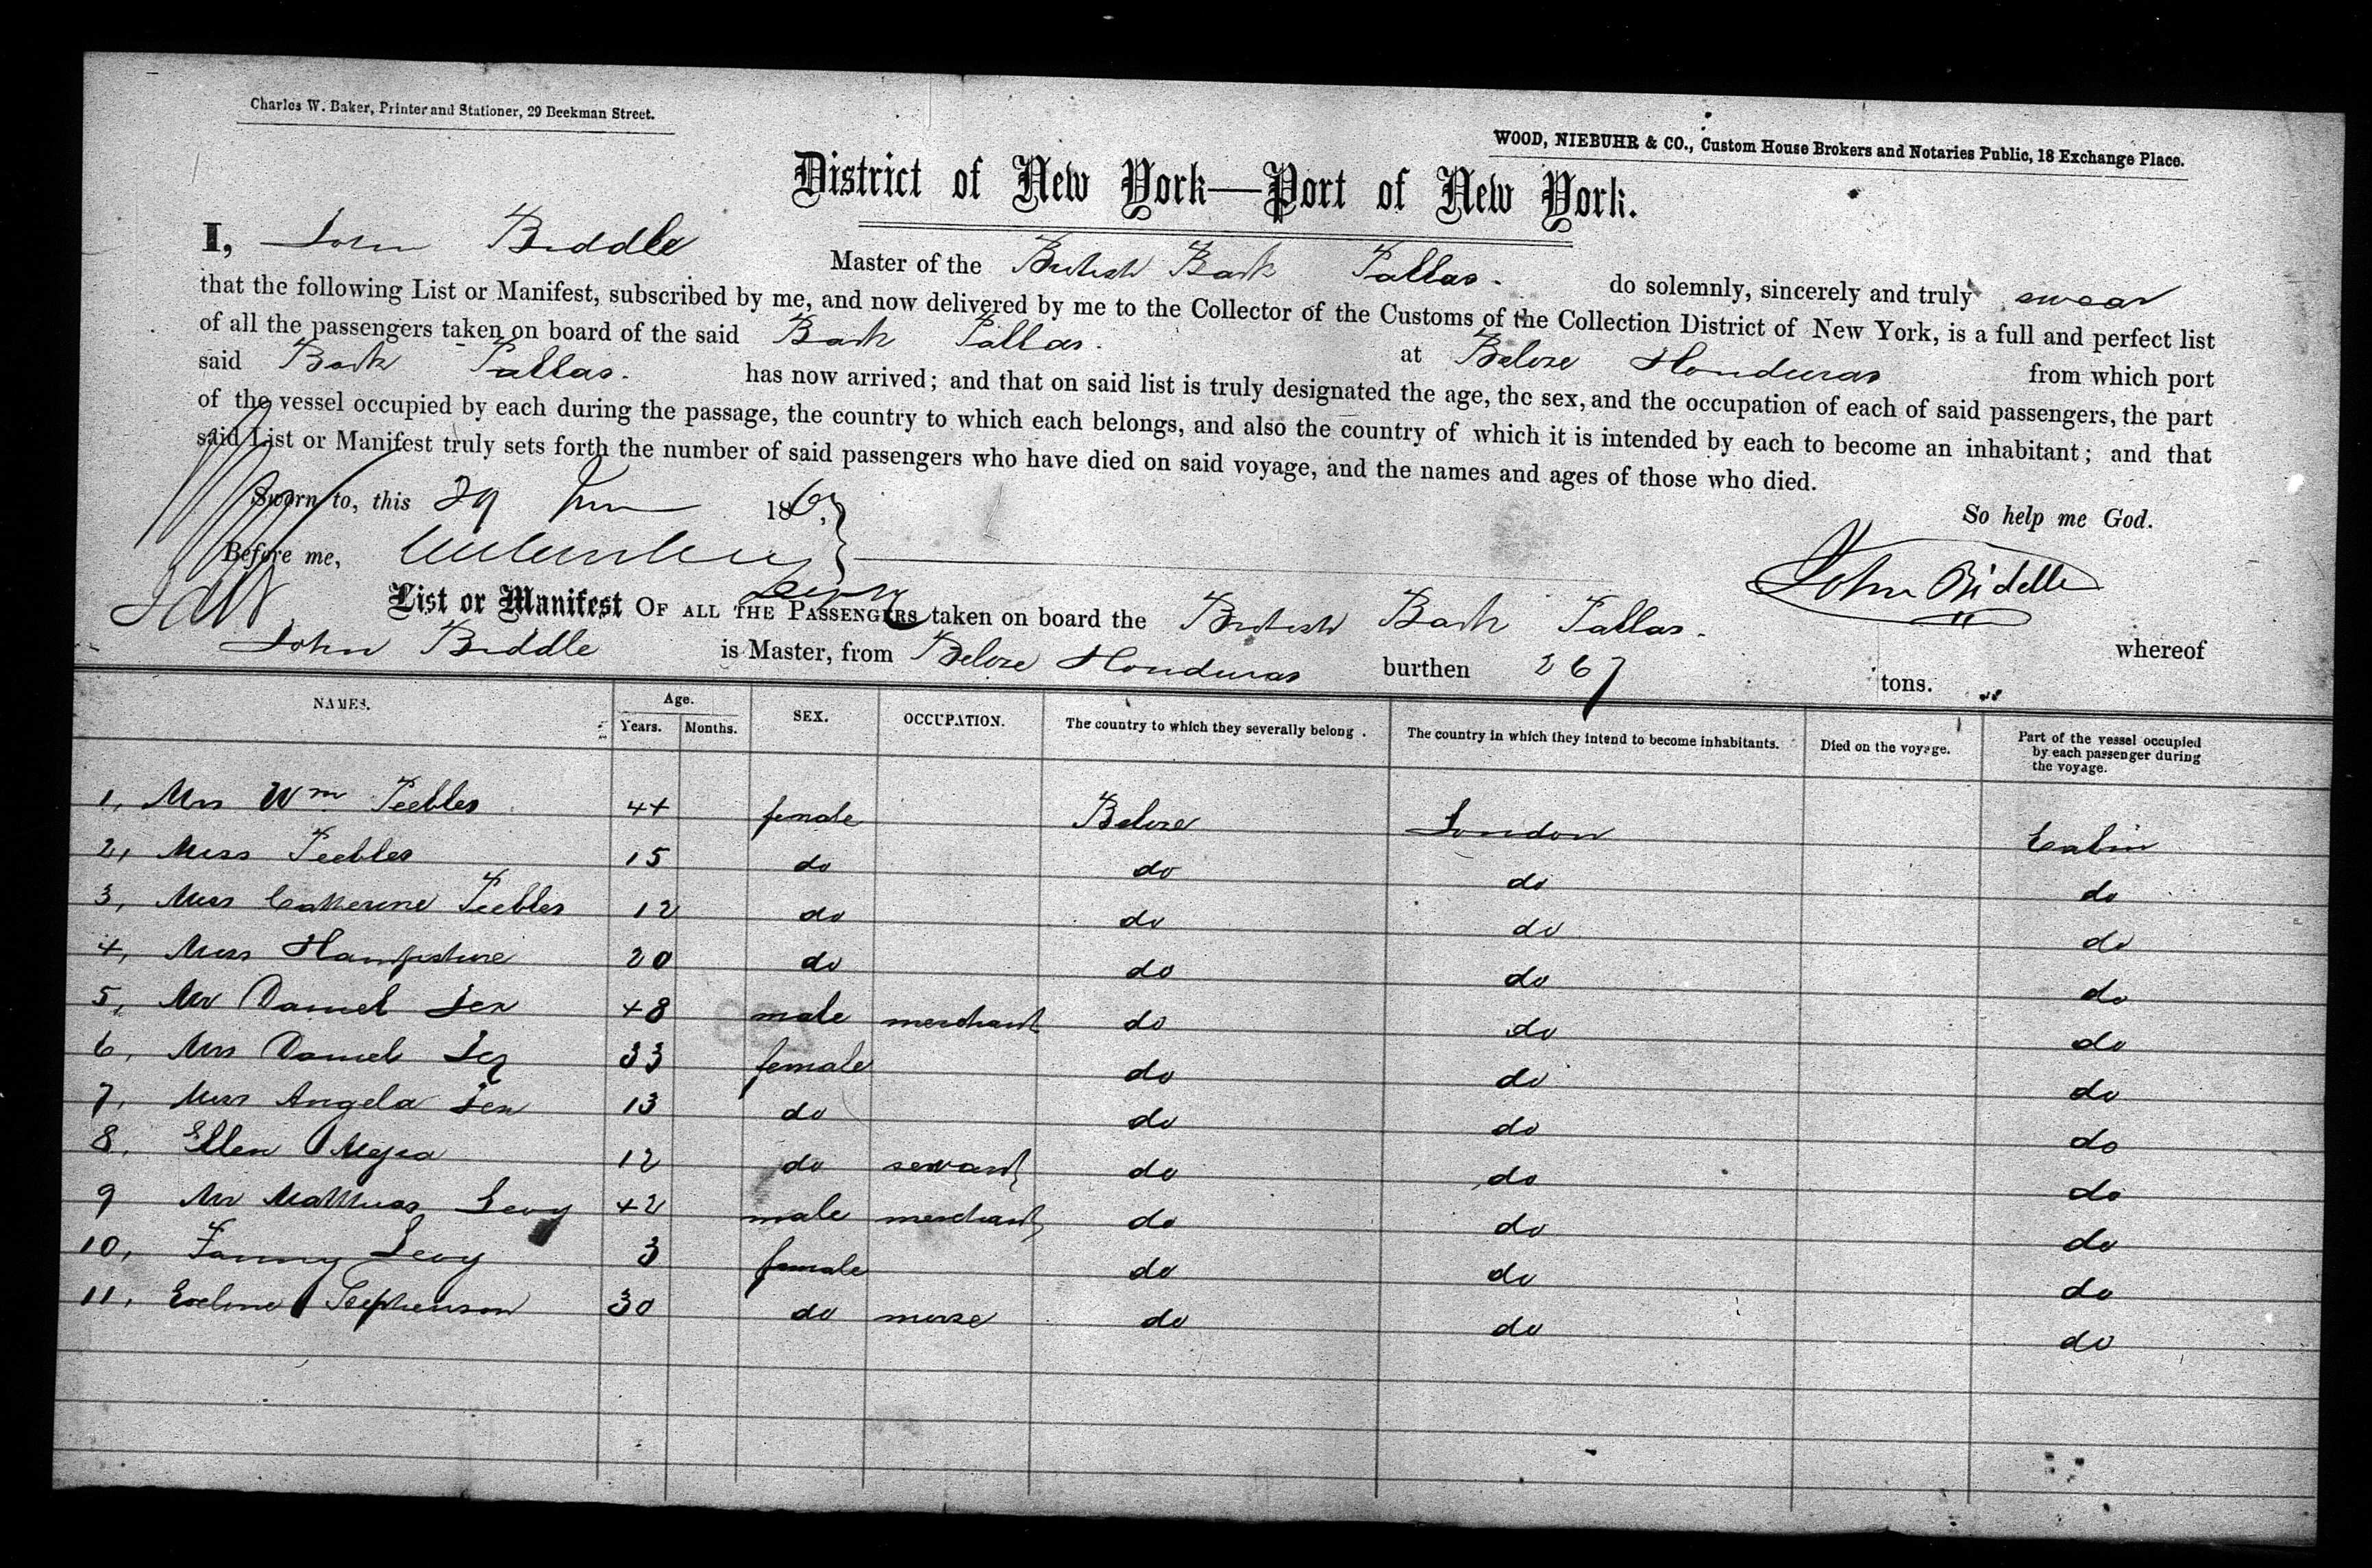 Charles W. Baker, Printer and Stationer, 29 Beekman Street.
WOOD, NIEBUHR & CO., Custom House Brokers and Notaries Public, 18 Exchange Place.
District of New York—Port of New York.
I, John Biddle Master of the British Bark Pallas. do solemnly, sincerely and truly swear
that the following List or Manifest, subscribed by me, and now delivered by me to the Collector of the Customs of the Collection District of New York, is a full and perfect list
of all the passengers taken on board of the said Bark Pallas. at Belize Honduras from which port
said Bark Pallas. has now arrived; and that on said list is truly designated the age, the sex, and the occupation of each of said passengers, the part
of the vessel occupied by each during the passage, the country to which each belongs, and also the country of which it is intended by each to become an inhabitant; and that
said List or Manifest truly sets forth the number of said passengers who have died on said voyage, and the names and ages of those who died.
Sworn to, this 29 June 186
So help me God.
Before me,
John Biddle
List or Manifest OF ALL THE PASSENGERS taken on board the British Bark Pallas. whereof
John Biddle is Master, from Belize Honduras burthen 267 tons.
NAMES. Age. Years. Months. SEX. OCCUPATION. The country to which they severally belong. The country in which they intend to become inhabitants. Died on the voyage. Part of the vessel occupied by each passenger during the voyage.
1, Mrs Wm Peebles 44 female Belize London Cabin
2, Miss Peebles 15 do do do do
3, Miss Catherine Peebles 12 do do do do
4, Miss Hampshire 20 do do do do
5, Mr Daniel 48 male merchant do do do
6, Mrs Daniel 33 female do do do
7, Miss Angela 13 do do do do
8, Ellen Mejia 12 do servant do do do
9 Mr Matthias Levy 42 male merchant do do do
10, Fanny Levy 3 female do do do
11, Eveline Stephenson 30 do nurse do do do